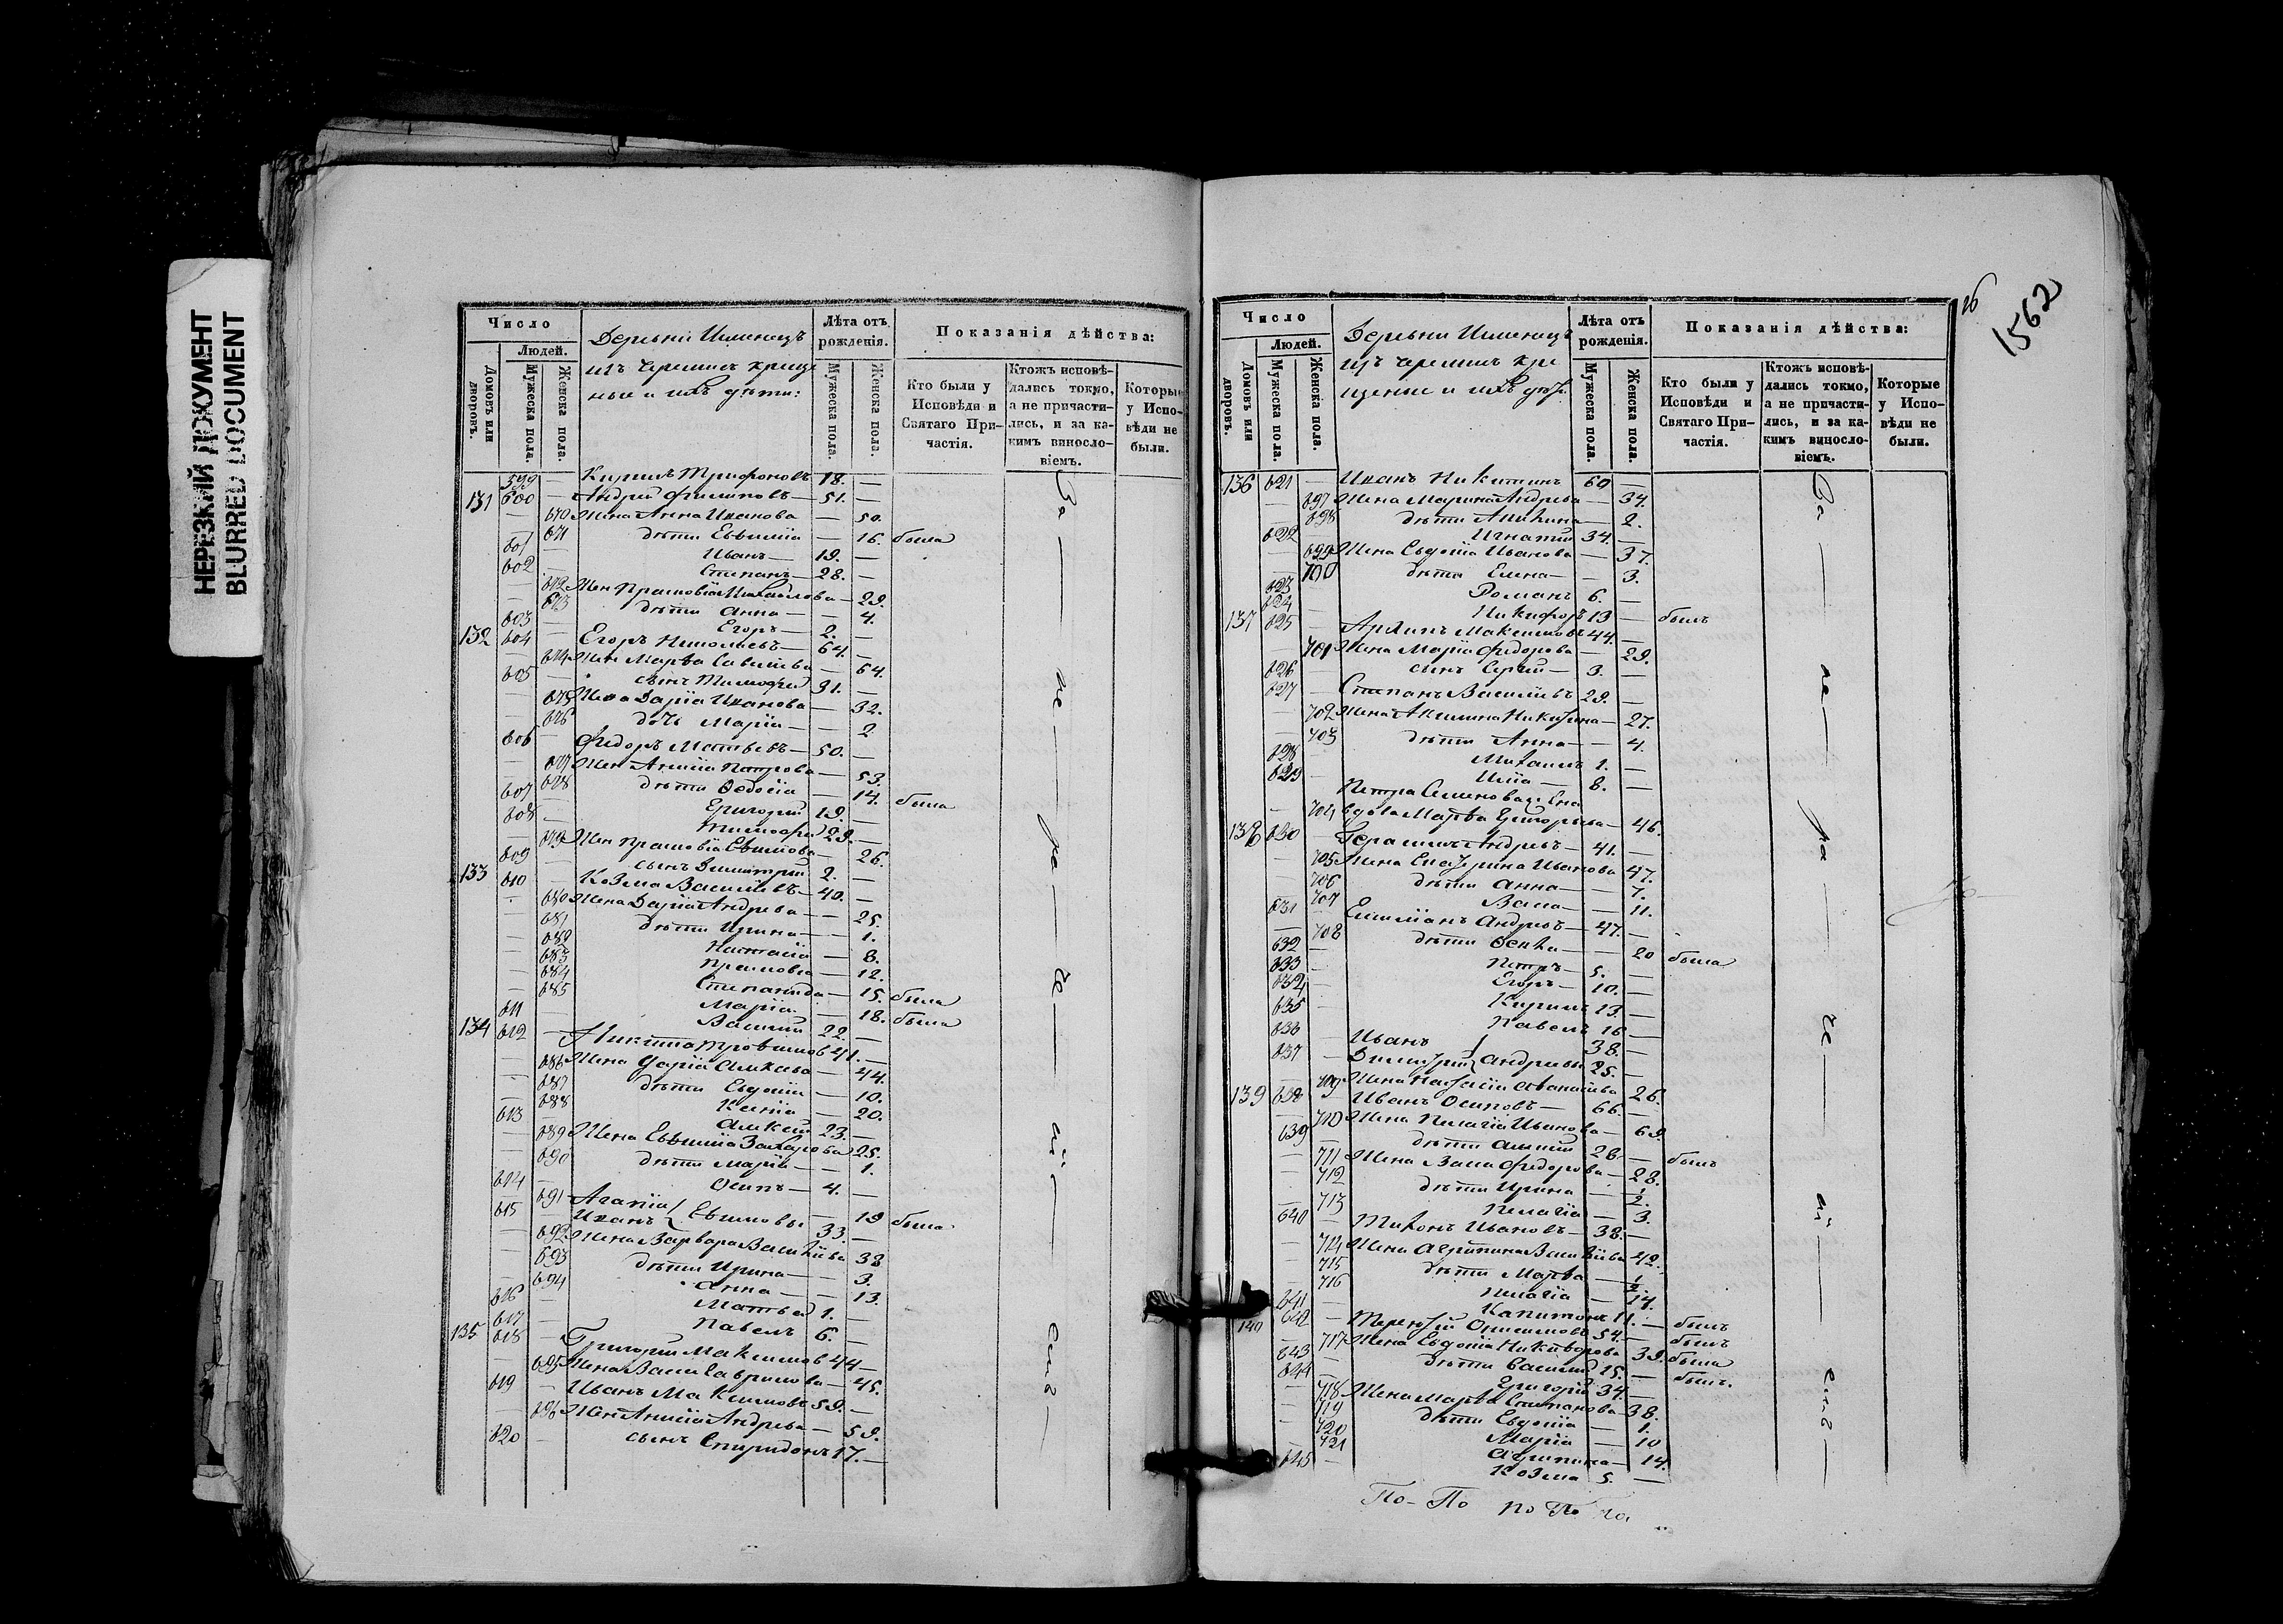 НЕРЕЗКИЙ ДОКУМЕНТ
BLURRED DOCUMENT
Число
Людей.
Домовъ или дворовъ.
Мужеска пола.
Женска пола.
крещеные и ихъ дѣти:
Лѣта отъ рожденія.
Мужеска пола.
Женска пола.
Показанія дѣйства:
Кто были у Исповѣди и Святаго Причастія.
Ктожъ исповѣдались токмо, а не причастились, и за какимъ винословіемъ.
Которые у Исповѣди не были.
599 — Кирилъ Трифоновъ 18. —
131 600 — Андрей Филиповъ — 51. —
— 670 Жена Анна Иванова — 50.
— 671 дѣти Евѳимія — 16. была
601 — Иванъ — 19. —
602 — Степанъ — 28. —
— 672 Жен Прасковія Михайлова — 29.
— 673 дѣти Анна — 4.
603 — Егоръ — 2. —
132 604 — Егоръ Николаевъ — 64. —
— 674 Жен Марѳа Савельева — 64.
605 — сынъ Тимофей 31. —
— 675 Жена Дарія Иванова — 32.
— 676 дочь Марія — 2
606 — Федоръ Матвеевъ — 50. —
— 677 Жен Анисія Петрова — 53.
— 678 дѣти Ѳедосія — 14. была
607 — Григорій 19. —
608 — Тимофей 29. —
— 679 Жен Прасковія Евѳимова — 26.
609 — сынъ Димитрій 2. —
133 610 — Козма Васильевъ — 40. —
— 680 Жена Дарія Андреева — 25.
— 681 дѣти Ирина — 1.
— 682 Наталія — 8.
— 683 Прасковія — 12.
— 684 Степанида — 15. была
— 685 Марія — 18. была
611 — Василій 22. —
134 612 — Никита Трофимов 41. —
— 686 Жена Дарія Алексеева — 44.
— 687 дѣти Евдокія — 10.
— 688 Ксенія — 20.
613 — Алексей 23. —
— 689 Жена Евѳимія Захарова 25.
— 690 дѣти Марія — 1.
614 — Осипъ — 4. —
— 691 Агапія } Евѳимовы — 19 была
615 — Иванъ 33. —
— 692 Жена Варвара Васильева 38
— 693 дѣти Ирина — 3.
— 694 Анна — 13.
616 — Матвей 1. —
617 — Павелъ 6. —
135 618 — Григорій Максимов 44 —
— 695 Жена Васса Гаврилова — 45.
619 — Иванъ Максимовъ 59. —
— 696 Жен Анисія Андреева — 59.
620 — сынъ Спиридонъ 17. —
За — не — ра — че — ні — емъ —
26
1562
Число
Людей.
Домовъ или дворовъ.
Мужеска пола.
Женска пола.
Лѣта отъ рожденія.
Мужеска пола.
Женска пола.
Показанія дѣйства:
Кто были у Исповѣди и Святаго Причастія.
Ктожъ исповѣдались токмо, а не причастились, и за какимъ винословіемъ.
Которые у Исповѣди не были.
136 621 — Иванъ Никитинъ 60 —
— 697 Жена Марина Андреева — 34.
— 698 дѣти — 2.
622 — Игнатій 34. —
— 699 Жена Евдокія Иванова — 37.
— 700 дѣти Елена — 3.
623 — Романъ 6. —
624 — Никифоръ 13 — былъ
137 625 — Максимовъ 44. —
— 701 Жена Марія Федорова — 29.
626 — сынъ Сергій — 3. —
627 — Степанъ Васильевъ 29. —
— 702 Жена Акилина Никитина — 27.
— 703 дѣти Анна — 4.
628 — Михаилъ 1. —
629 — Илія — 8. —
Петра Семенова
704 вдова Марѳа Григорьева — 46.
138 630 — Герасимъ Андреевъ — 41. —
— 705 Жена Екатерина Иванова 47.
— 706 дѣти Анна — 7.
— 707 Васса — 11.
631 — Емелианъ Андреевъ — 47. —
— 708 дѣти Ѳекла — 20 была
632 — Петръ — 5. —
633 — Егоръ — 10. —
634 — Кирилъ 13. —
635 — Павелъ 16 —
636 — Иванъ 38. —
637 — Димитрій } Андреевы 25. —
— 709 Жена Наталія Аѳанасьева 26.
139 638 — Иванъ Осиповъ — 66. —
— 710 Жена Пелагія Иванова — 69.
639 — дѣти 26 — былъ
— 711 Жена Васса Федорова — 28.
— 712 дѣти Ирина — ½.
— 713 Пелагія — 3.
640 — Тихонъ Ивановъ — 38. —
— 714 Жена Агрипина Васильева 42.
— 715 дѣти Марѳа — ½.
— 716 Пелагія — 14.
641 — Капитонъ 11. — былъ
140 642 — Терентій Онисимовъ 54. — былъ
— 717 Жена Евдокія Никифорова 39. была
643 — дѣти Василій 15. — былъ.
644 — Григорій 34. —
— 718 Жена Марѳа Степанова — 38.
— 719 дѣти Евдокія — 1.
— 720 Марія — 10
— 721 Агрипина — 14.
645 — Козма 5. —
За — не — ра — че — ні — емъ —
По — По по По